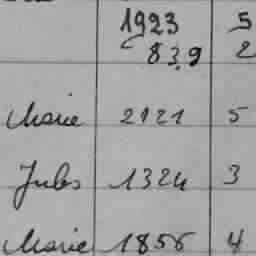 1923 5
83,9 2
Marie 2121 5
Jules 1324 3
Marie 1856 4